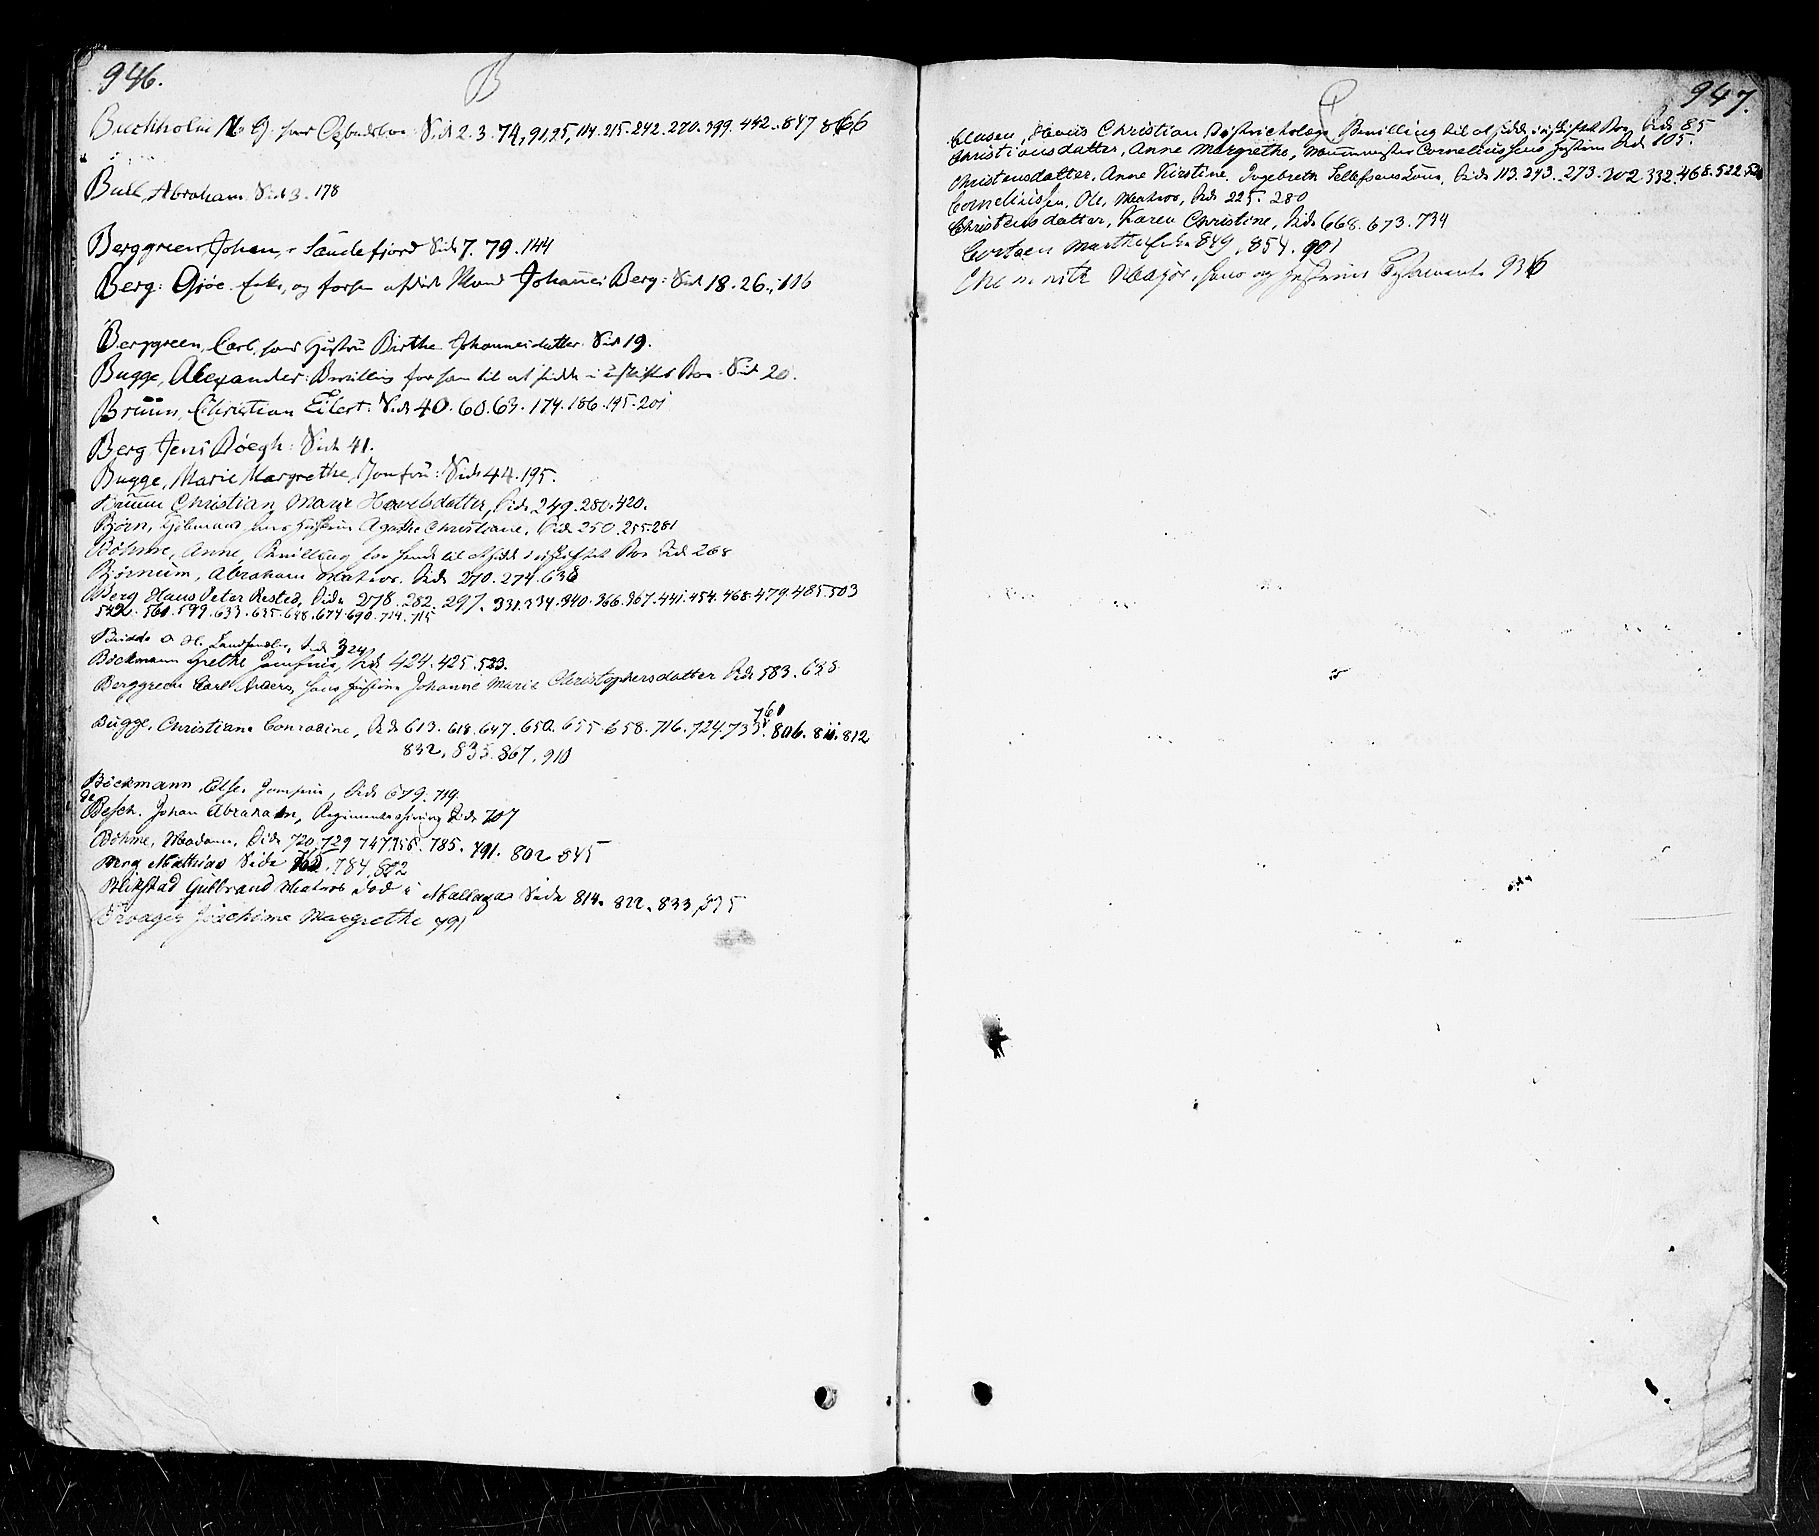 946.
B
Buchholm N. G. hans Side 2. 3. 74, 91, 95, 114. 215. 242. 270. 399. 442. 847 866
Buel, Abraham. Side 3. 178
Berggreen, Johan, i Sandefjord Side 7. 79. 144
Berg: Gjøe Enke, og forhen afdøde Mand Johannes Berg: Side 18. 26. 116
Berggreen, Carl, hans Hustru Birthe Johannesdatter. Side 19.
Bugge, Alexander: Bevilling for ham til at sidde i uskiftet Boe. Side 20.
Bruun, Christian Eilert: Side 40. 60. 63. 174. 186. 195. 201
Berg Jens Bøegh: Side 41.
Bugge, Marie Margrethe, Jomfru: Side 44. 195.
Bruun Christian, Marie Hovelsdatter, Side 249. 280. 420.
Bjørn, hans Hustrue Agathe Christiane, Side 250. 255. 281
Bøhme, Anne, Bevilling for hende til at sidde i uskiftet Boe Side 268
Bjørnum, Abraham Matros. Side 270. 274. 638
Berg Hans Peter Rested, Side 278. 282. 297. 331. 334. 340. 366. 367. 441. 454. 468. 479. 485. 503
542. 561. 599. 633. 635. 648. 674. 690. 714. 715
Side 324
Böckmann Grethe Jomfrue, Side 424. 425. 523.
Berggreen Carl Anders, hans Hustrue Johanne Marie Christophersdatter Side 583. 638
761
Bugge, Christiane Conradine, Side 613. 618. 647. 650. 655. 658. 716. 724. 733. 806. 811. 812
832. 835. 867. 910
Böckmann, Else Jomfrue, Side 679. 719.
de Besch. Johan Abraham, Side 707
Bøhme, Madame, Side 720. 729 747. 785. 791. 802 845
Berg Mathias Side 784. 822
Blikstad Gulbrand Matros død i Mallaga Side 814. 822. 833, 835
Joachime Margrethe 791
947.
C
Clausen, Hans Christian, Bevilling til at sidde i uskiftet Boe Side 85
Christiansdatter, Anne Margrethe, Cornelius hans Hustrue Side 105.
Christensdatter, Anne Kirstine, Ingebreth Tellefsens Kone, Side 113. 243. 273. 302. 332. 468. 522.
Corneliussen, Ole, Matros, Side 225. 280
Christensdatter, Karen Christine, Side 668. 673. 734
Marthe Enke 849, 854. 901
Chemnitz Major, hans og Hustrues Testamente 936